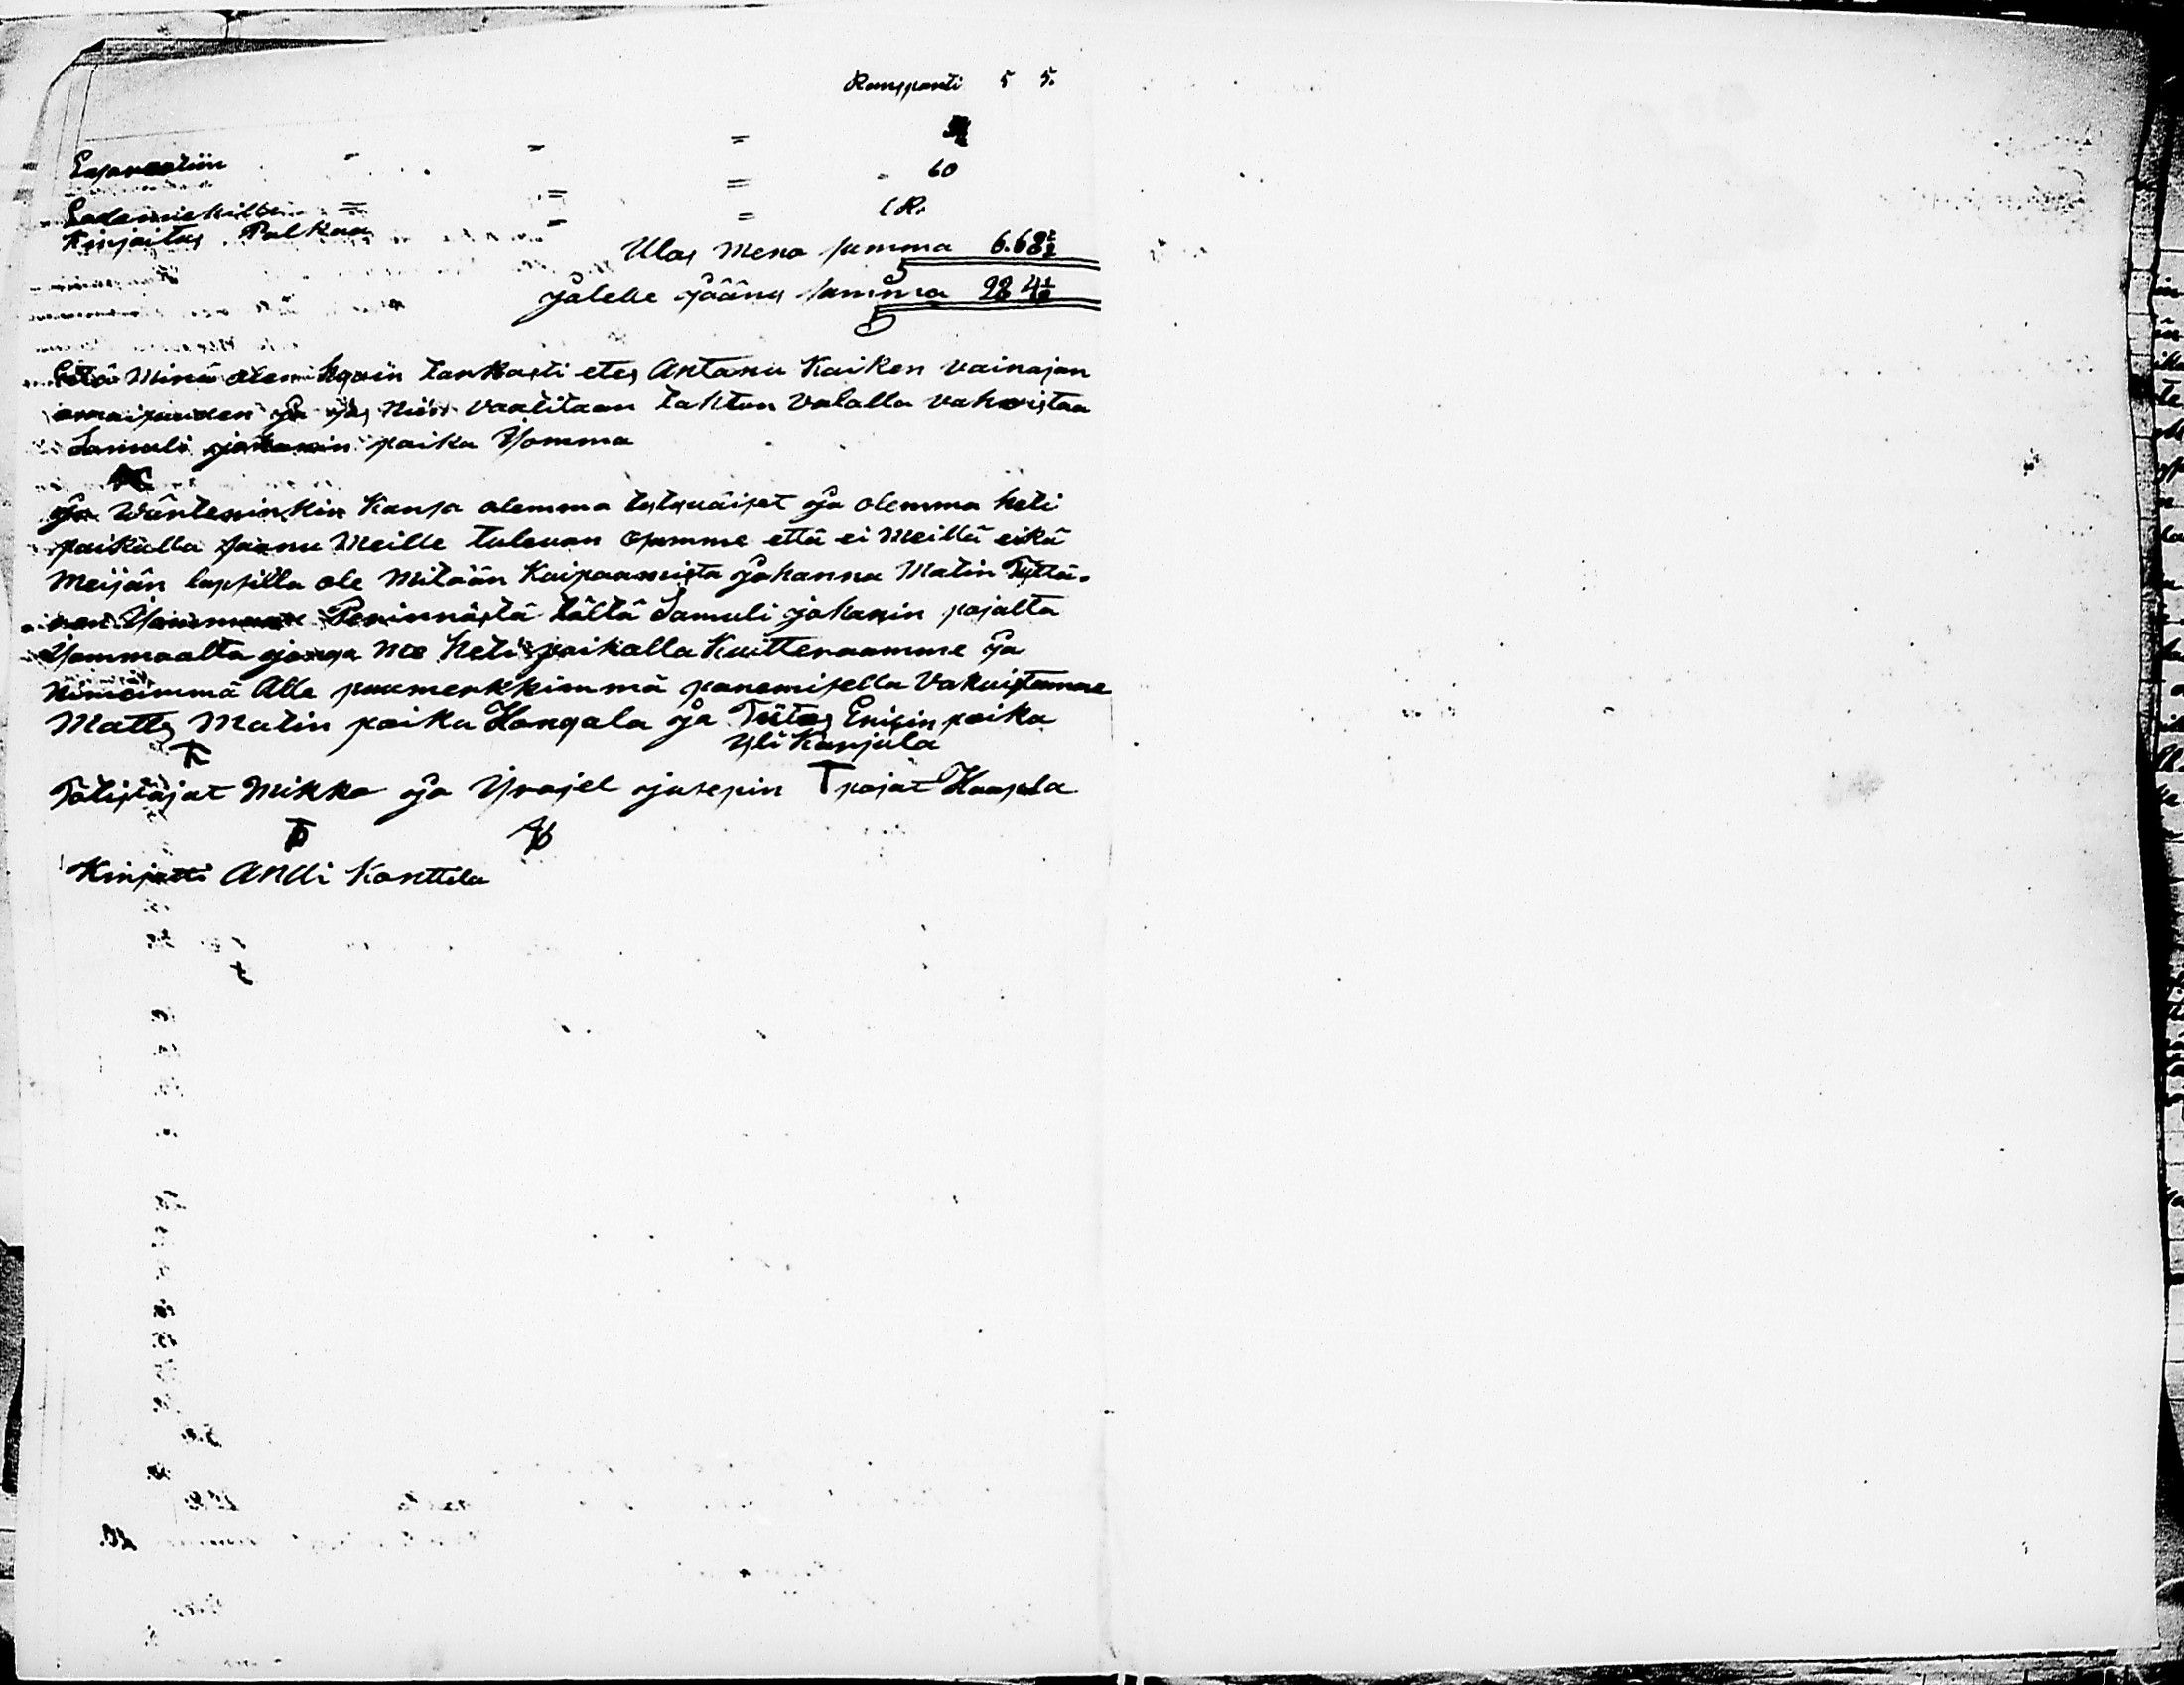 Ransporti 5 5.
60
Lademiehille = = = 1 Rr
Kirjoitus Palkaa = =
Ulos Meno summa 6.68½
jälelle jääny summa 28 4½
Että Minä olen hyvin tarkasti etes Antanu Kaiken vainajan
omaisuuden ja jos niin vaatitaan tahton Valalla vahvistaa
Samuli johanin poika Yjomma
ja Wäntesinkin kansa olemma tytyväiset ja olemma heti
paikalla saanu Meille tulevan osamme että ei Meillä eikä
Meijän lapsilla ole Mitään Kaipaamista johanna Matin Tyttä-
ren Perinnästä tältä Samuli johanin pojalta
Yjommaalta jonga Me heti paikalla Kuitteraamme ja
Nimeimmä Alla puumerkkimmä panemisella Vakuistamme
Matts Matin poika Hangala ja Tiitus Erikin poika
Yli Karjula
Totistajat Mikko ja Ysrajel jusepin pojat Haapala
Kirjotti Antti Konttila